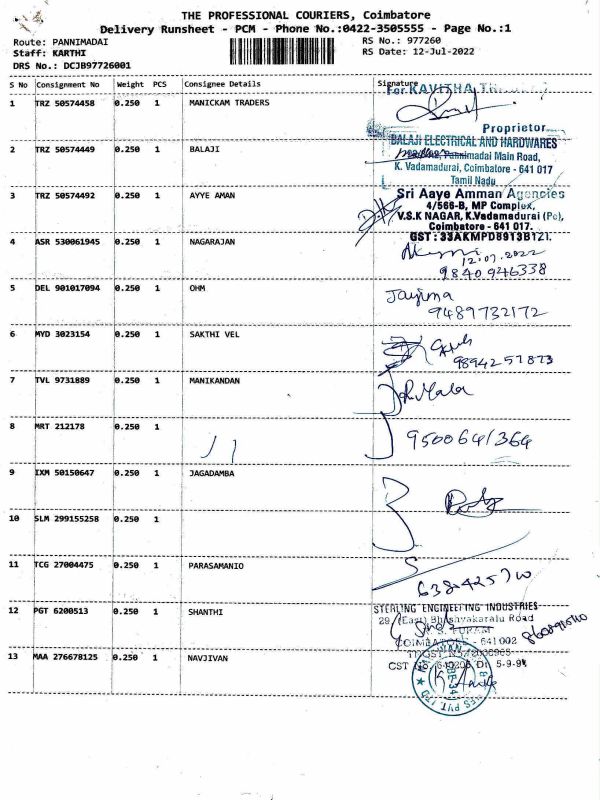 THE PROFESSIONAL COURIERS, Coimbatore
Delivery Runsheet - PCM - Phone No.:0422-3505555 - Page No.:1
Route: PANNIMADAI RS No.: 977260
Staff: KARTHI RS Date: 12-Jul-2022
DRS No.: DCJB97726001
S No Consignment No Weight PCS Consignee Details Signature
For KAVITHA
1 TRZ 50574458 0.250 1 MANICKAM TRADERS
Proprietor
BALAJI ELECTRICAL AND HARDWARES
2 TRZ 50574449 0.250 1 BALAJI
Pannimadai Main Road,
K. Vadamadurai, Coimbatore - 641 017
Tamil Nadu
3 TRZ 50574492 0.250 1 AYYE AMAN
Sri Aaye Amman Agencies
4/566-B, MP Complex,
V.S.K NAGAR, K.Vadamadurai (Po),
Coimbatore - 641 017.
GST : 33AKMPD8913B1ZI.
4 ASR 530061945 0.250 1 NAGARAJAN
12.07.2022
9840946338
5 DEL 901017094 0.250 1 OHM
Jayima
9489732172
6 MYD 3023154 0.250 1 SAKTHI VEL
9894257873
7 TVL 9731889 0.250 1 MANIKANDAN
Mala
8 MRT 212178 0.250 1
9500641364
9 IXM 50150647 0.250 1 JAGADAMBA
10 SLM 299155258 0.250 1
11 TCG 27004475 0.250 1 PARASAMANIO
12 PGT 6200513 0.250 1 SHANTHI
STERLING ENGINEERING INDUSTRIES
29, (East) Bhashyakaralu Road
R. S. PURAM
COIMBATORE - 641 002
13 MAA 276678125 0.250 1 NAVJIVAN
CST No. Dt. 5-9-94